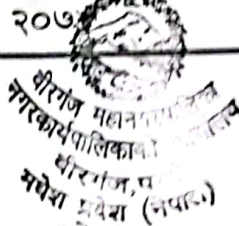 २०७
वीरगंज महानगरपालिका
नगरकार्यपालिकाको कार्यालय
वीरगंज, प
मधेश प्रदेश (नेपाल)